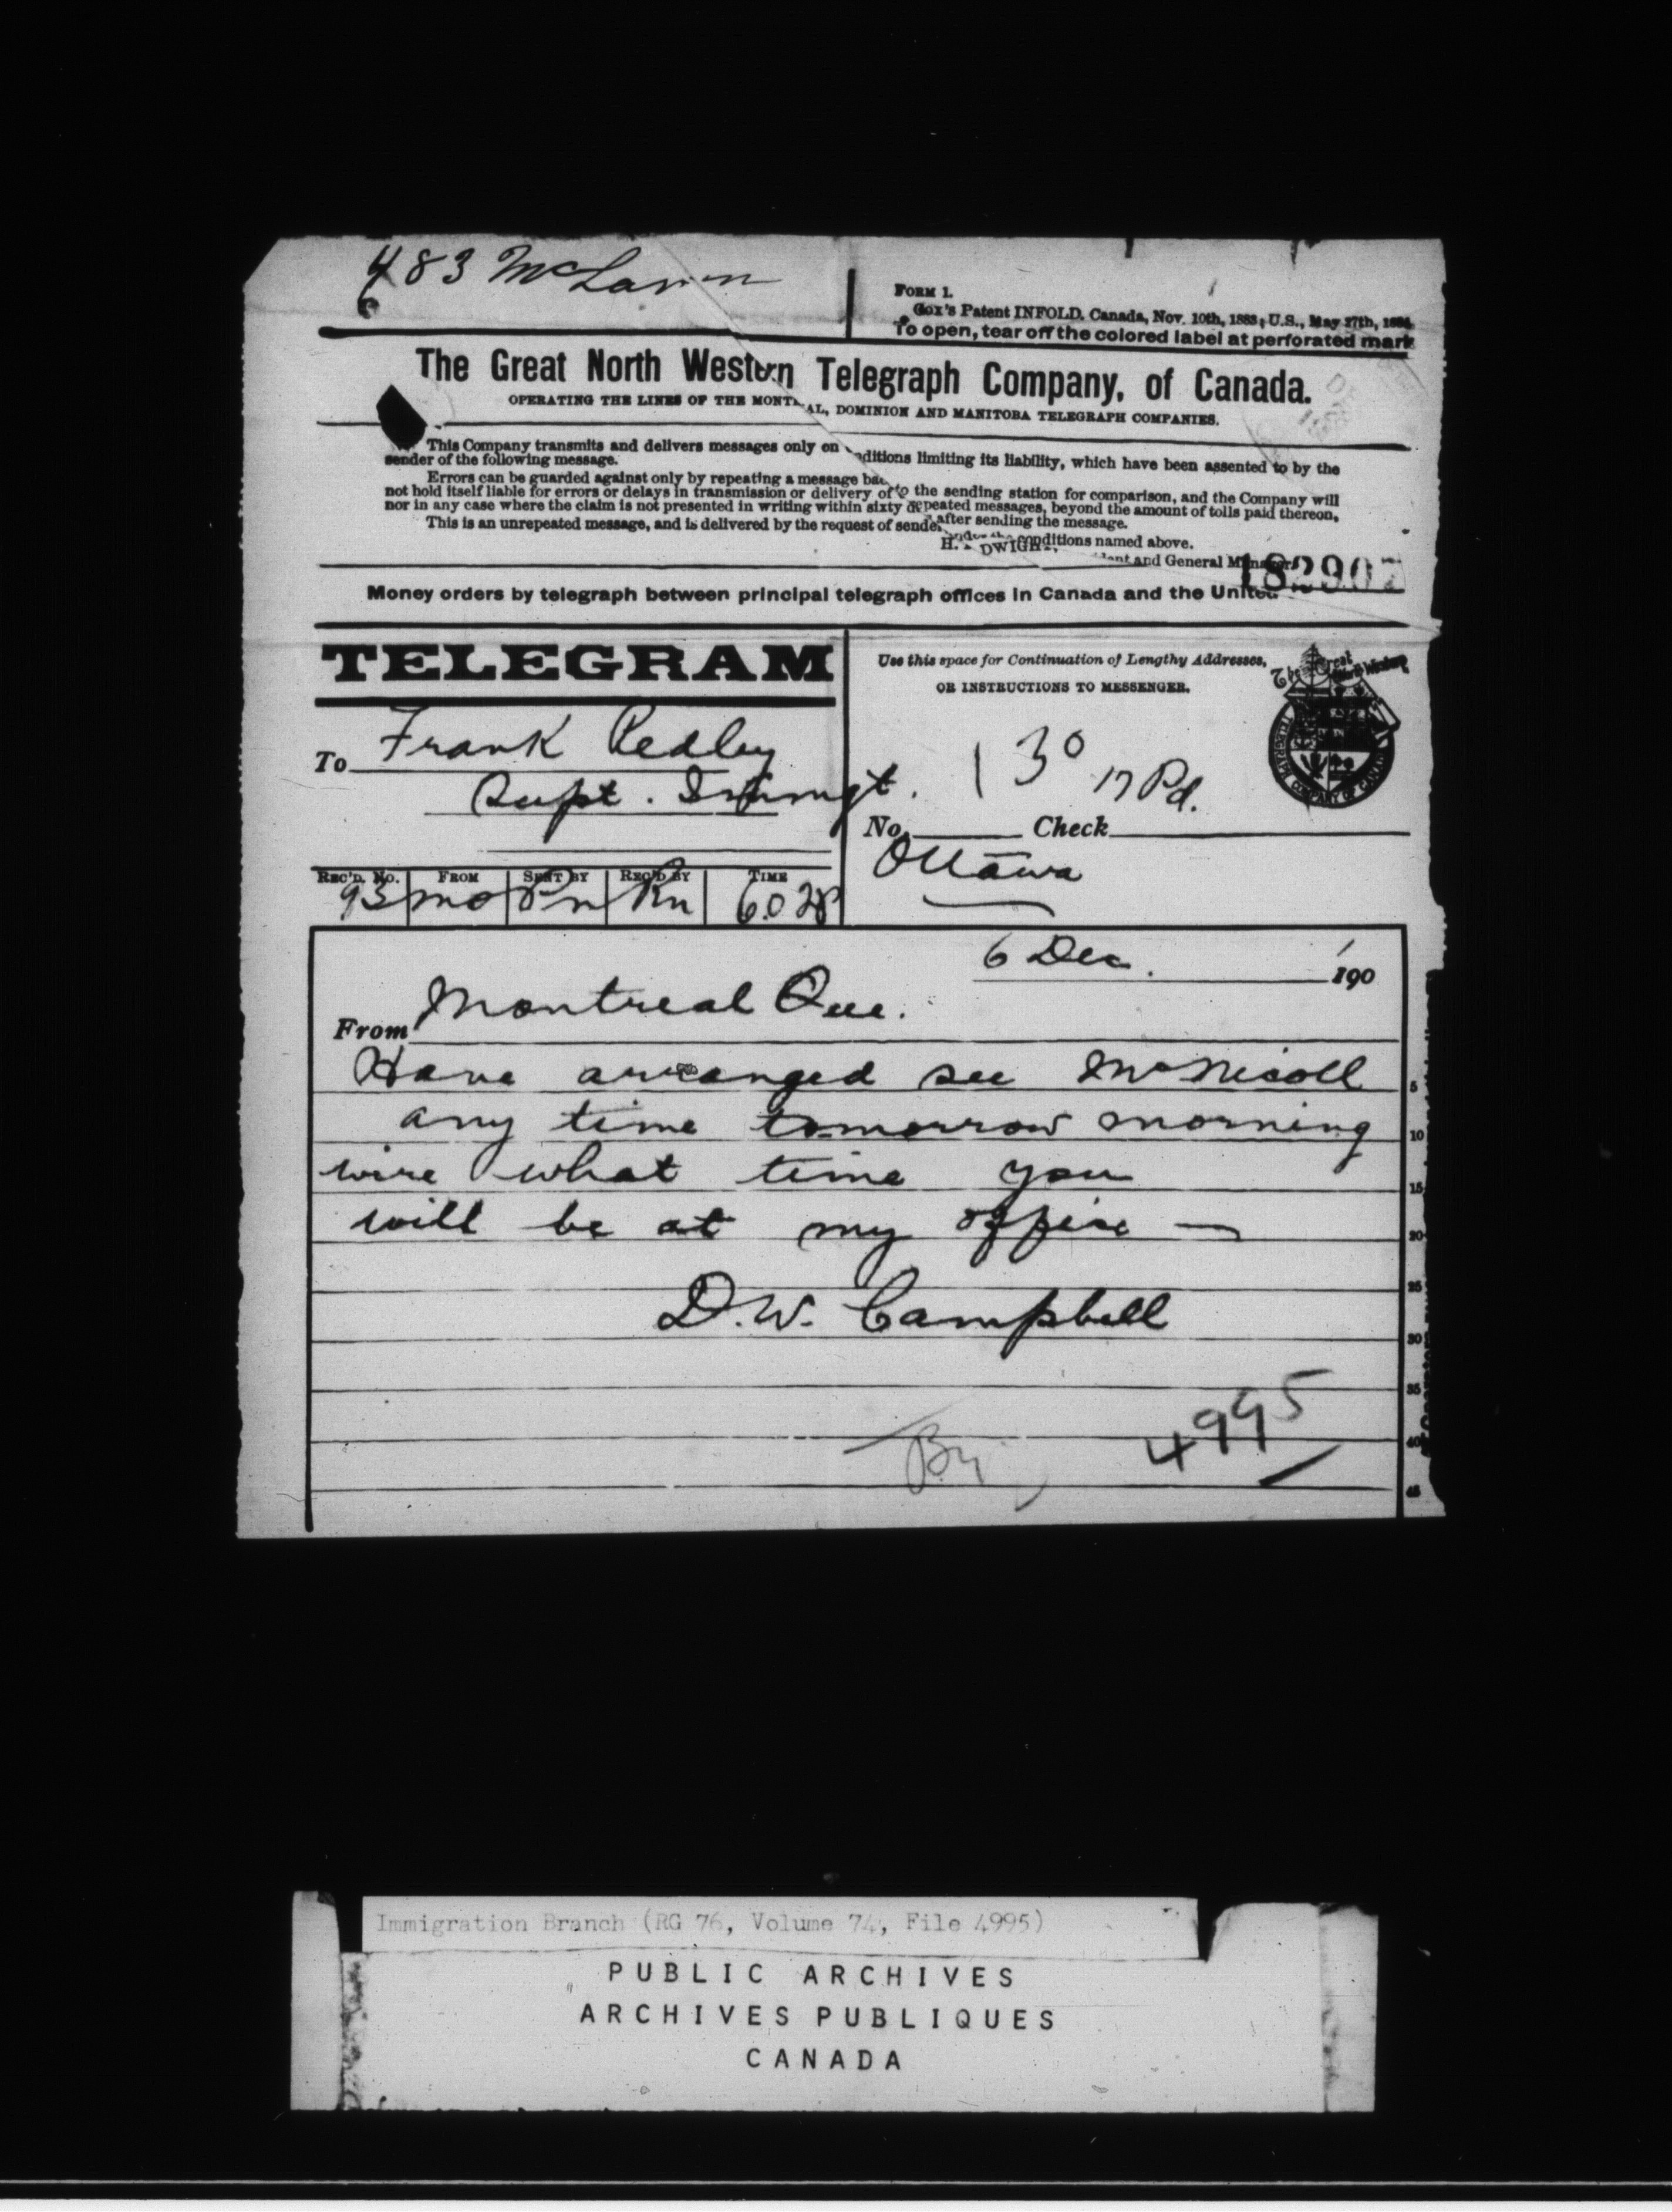 483 McLaren
FORM 1.
Cox's Patent INFOLD. Canada, Nov. 10th, 1883; U.S., May 27th, 1884.
To open, tear off the colored label at perforated mark
The Great North Western Telegraph Company, of Canada.
OPERATING THE LINES OF THE MONTREAL, DOMINION AND MANITOBA TELEGRAPH COMPANIES.
This Company transmits and delivers messages only on conditions limiting its liability, which have been assented to by the
sender of the following message.
Errors can be guarded against only by repeating a message back to the sending station for comparison, and the Company will
not hold itself liable for errors or delays in transmission or delivery of repeated messages, beyond the amount of tolls paid thereon,
nor in any case where the claim is not presented in writing within sixty days after sending the message.
This is an unrepeated message, and is delivered by the request of sender under the conditions named above.
H. P. DWIGHT, President and General Manager.
182907
Money orders by telegraph between principal telegraph offices in Canada and the United
TELEGRAM
Use this space for Continuation of Lengthy Addresses,
OR INSTRUCTIONS TO MESSENGER.
To Frank Pedley
Supt. Immgt.
130 17 Pd.
No. Check
Ottawa
REC'D. NO. FROM SENT BY REC'D BY TIME
93 mo Pn Rn 6.02P
6 Dec. 190
From Montreal Que.
Have arranged see McNicoll
any time tomorrow morning
wire what time you
will be at my office —
D.W. Campbell
4995
5
10
15
20
25
30
35
40
45
Immigration Branch (RG 76, Volume 74, File 4995)
PUBLIC ARCHIVES
ARCHIVES PUBLIQUES
CANADA